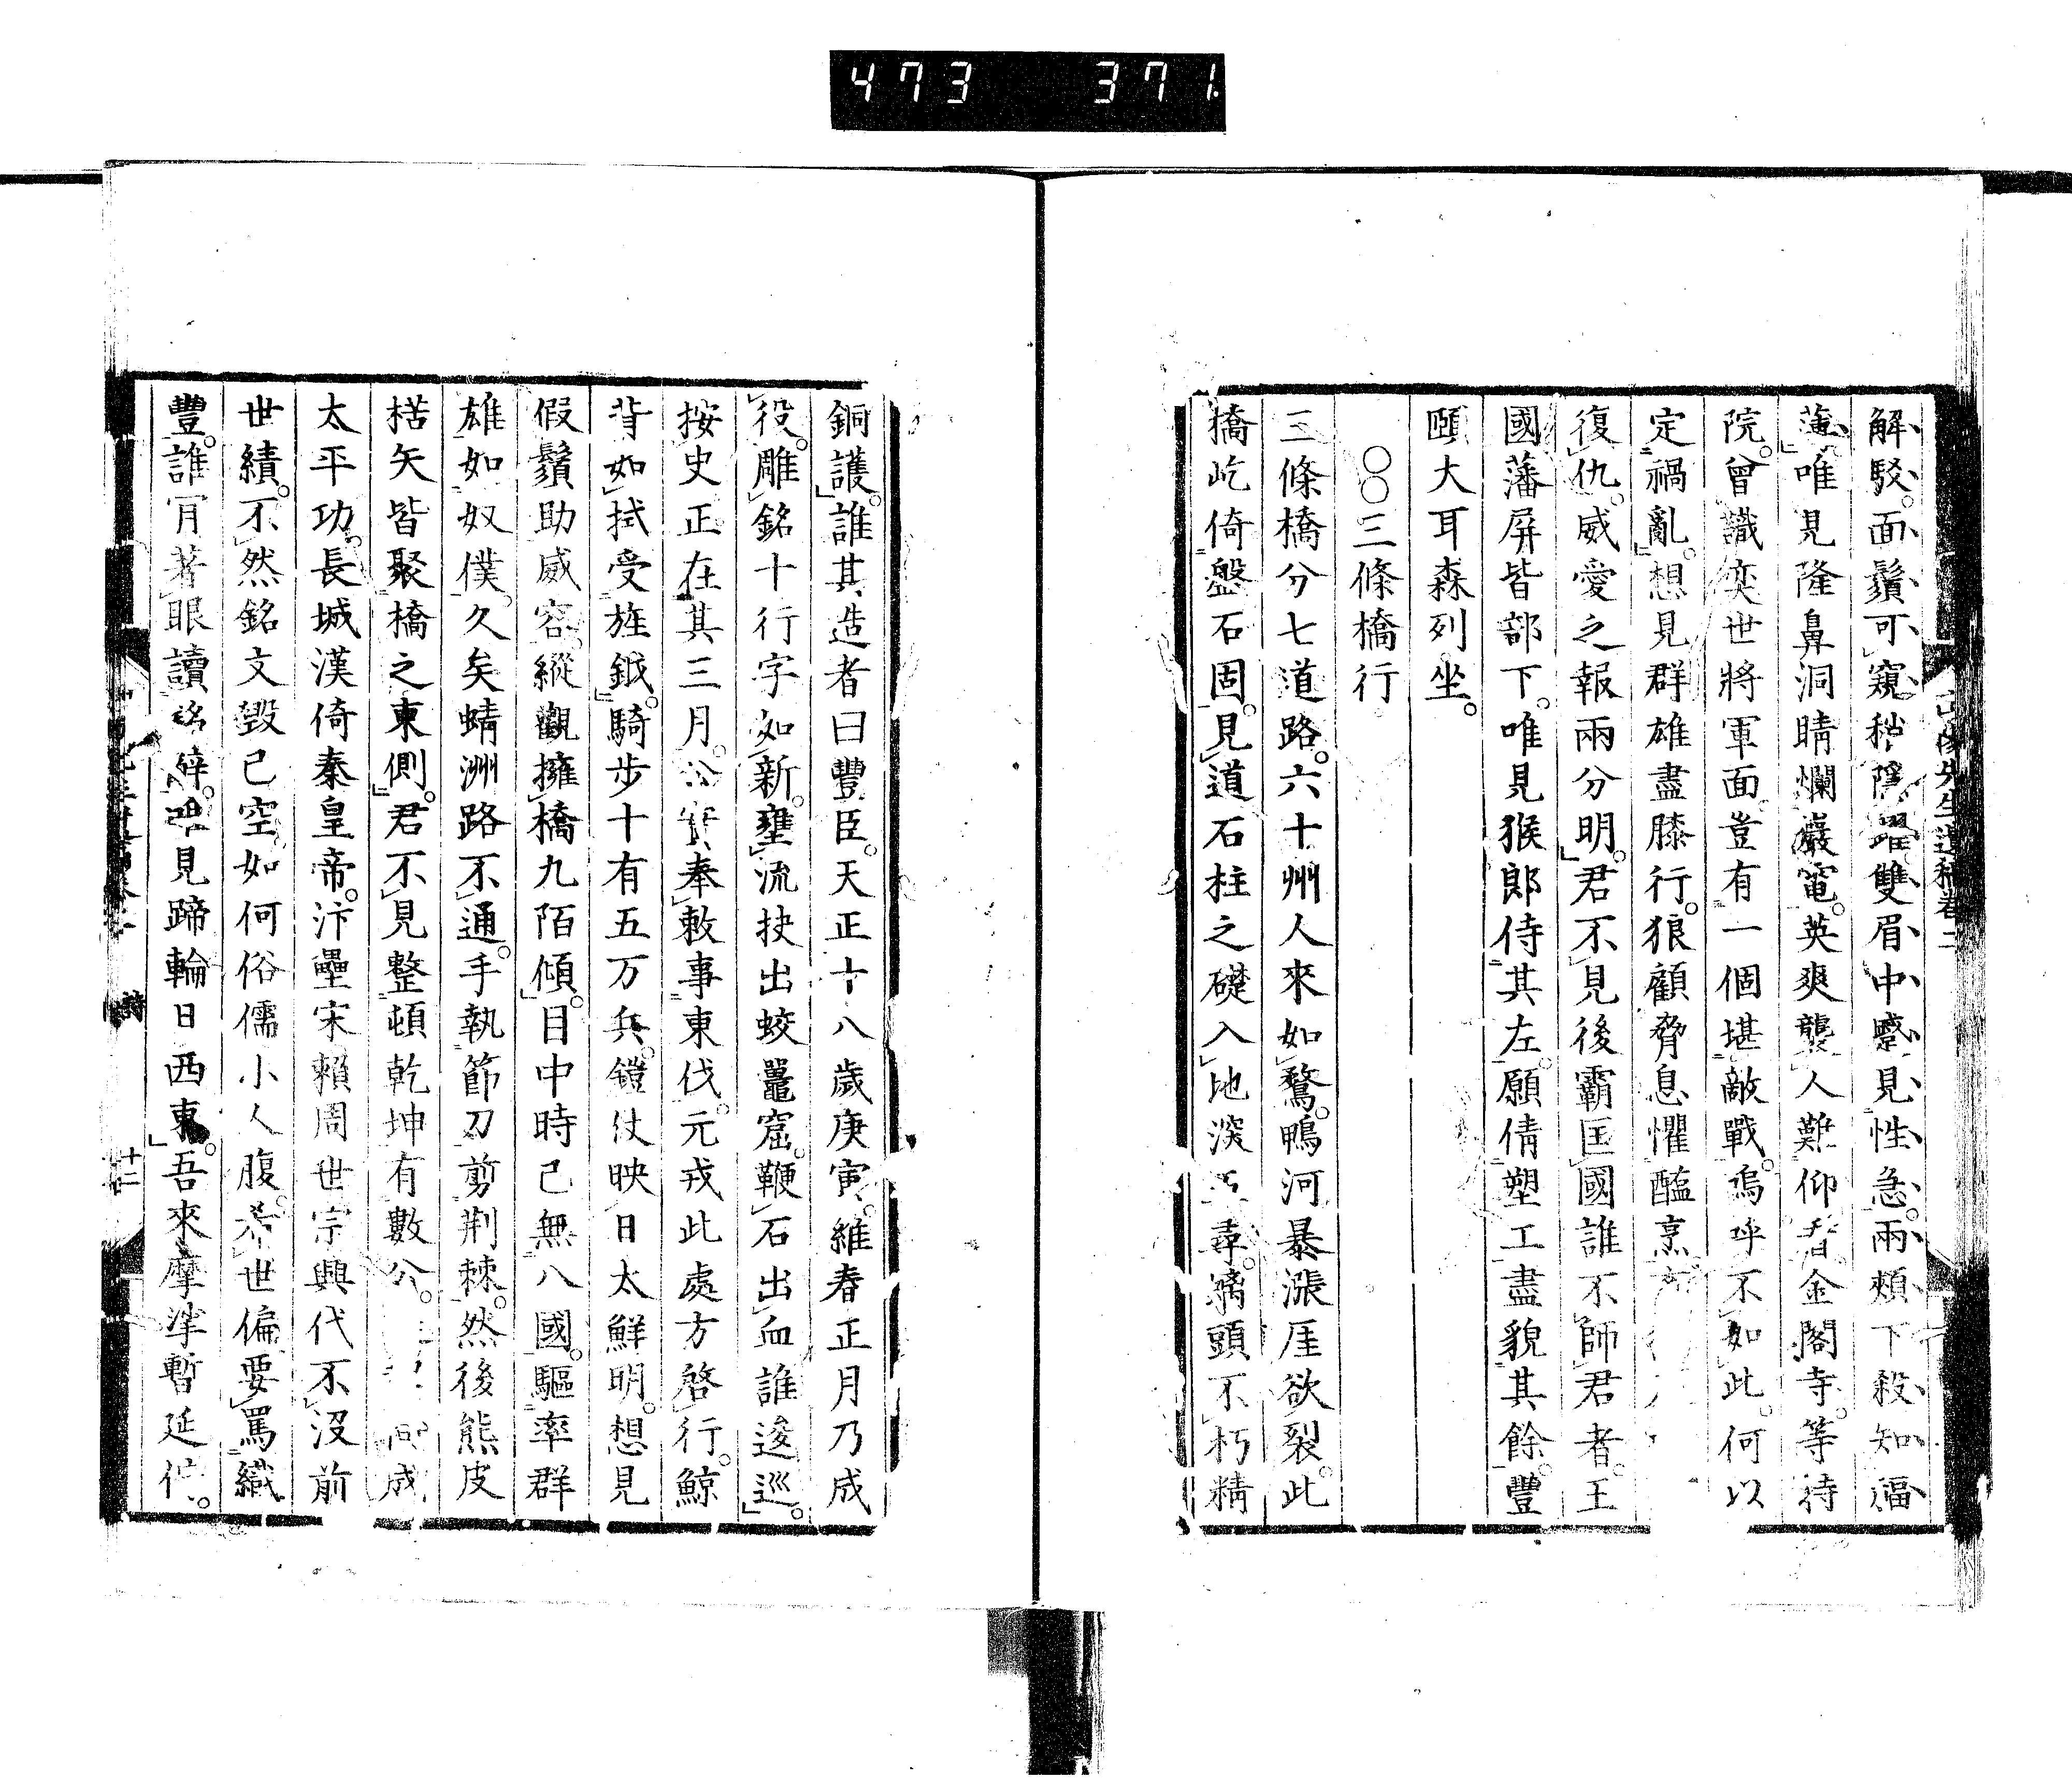 473 371
山陽先生遺稿卷二
解駁。面鬚可窺稍隱躍雙眉中蹙見性急。兩頰下殺知福
薄。唯見隆鼻洞睛爛巖電。英爽襲人難仰看。金閣寺等待
院。曾識奕世將軍面。豈有一個堪敵戰。嗚呼不如此。何以
定禍亂。想見群雄盡膝行。狼顧脅息懼醢烹
復仇。威愛之報兩分明。君不見後霸匡國誰不師君者。王
國藩屏皆部下。唯見猴郎侍其左。願倩塑工盡貌其餘。豐
頤大耳森列坐。
○○三條橋行
三條橋分七道路。六十州人來如鶩。鴨河暴漲厓欲裂。此
橋屹倚盤石固。見道石柱之礎入地深五尋。窩頭不朽精
銅護。誰其造者曰豐臣。天正十八歲庚寅。維春正月乃成
役。雕銘十行字如新。壅流抉出蛟鼉窟。鞭石出血誰逡巡。
按史正在其三月。公實奉敕事東伐。元戎此處方啓行。鯨
背如拭受旌鉞。騎步十有五万兵。鎧仗映日太鮮明。想見
假鬚助威容。縱觀擁橋九陌傾。目中時已無八國。驅率群
雄如奴僕。久矣蜻洲路不通。手執節刀剪荆棘。然後熊皮
楛矢皆聚橋之東側。君不見整頓乾坤有數公。成
太平功。長城漢倚秦皇帝。汴壘宋賴周世宗。興代不沒前
世績。不然銘文毀已空。如何俗儒小人腹。希世偏要罵織
豐。誰肯著眼讀銘辭。唯見蹄輪日西東。吾來摩挲暫延佇。
詩
十二